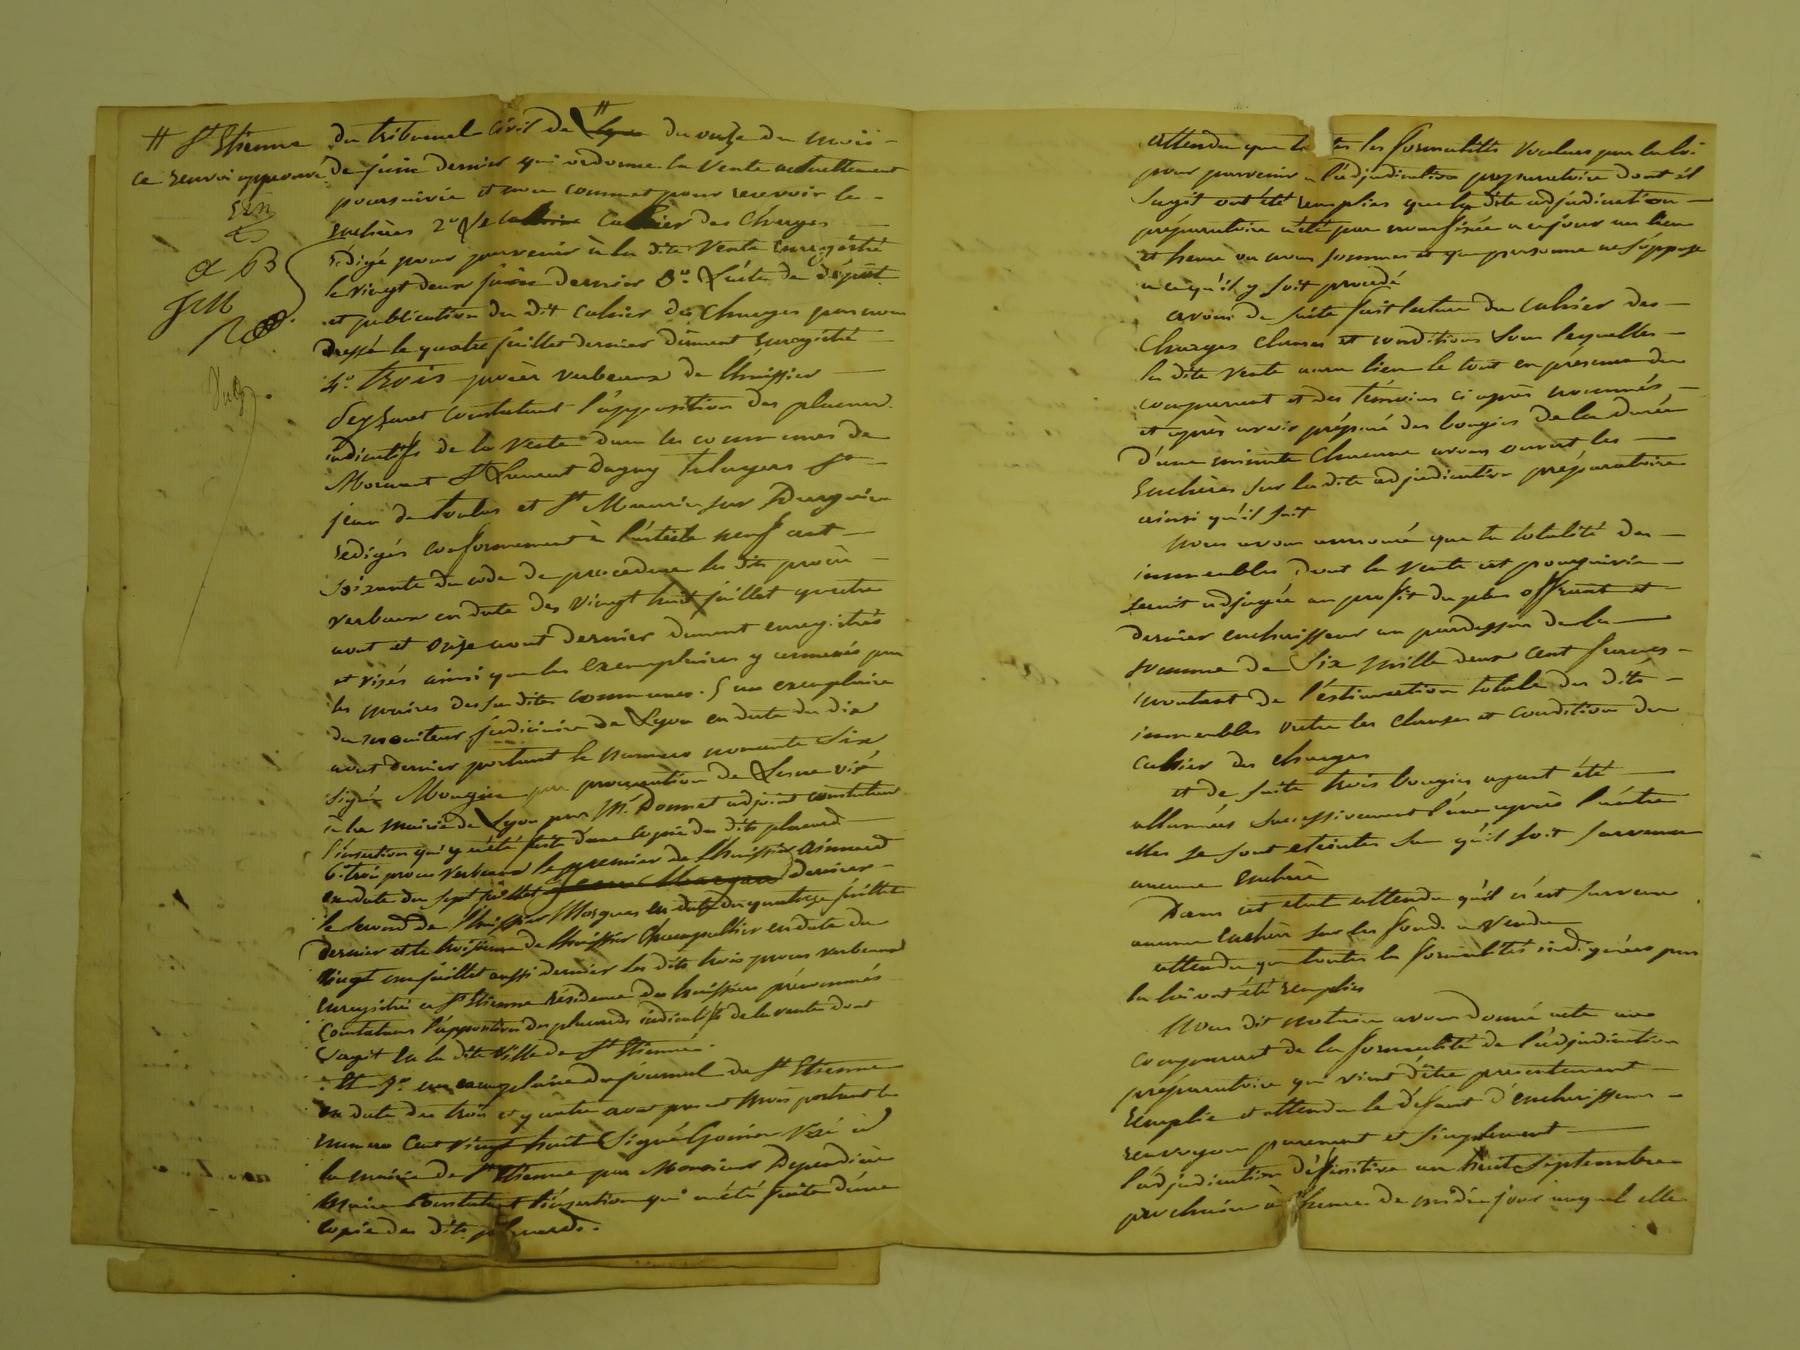 # St Etienne
ce renvoi approuvé
du tribunal civil de # Lyon du onze du mois
de juin dernier qui ordonne la vente actuellement
poursuivie et nous commet pour recevoir les
enchères 2° Le cahier Cahier des Charges
rédigé pour parvenir à la dite vente enregistré
le vingt deux juin dernier 3° L'acte de dépôt
et publication du dit cahier des charges par nous
dressé le quatre juillet dernier dûment enregistré
4° trois procès verbeaux de l'huissier
constatant l'apposition des placards
indicatifs de la vente dans les communes de
Mornant St Laurent Dagny Taluyers St
jean de toulas et St Maurice sur Dargoire
redigés conformement à l'article neuf cent
soixante du code de procedure les dits procès
verbaux en date des vingt huit juillet quatre
aout et onze aout dernier dument enregistrés
et visés ainsi que les exemplaires y annexés par
les maires des susdites communes. 5° un exemplaire
du moniteur judiciaire de Lyon en date du dix
aout dernier portant le numero nonante six
signé Mougin par procuration de visé
à la mairie de Lyon par Mr Donnet adjoint constatant
l'insertion qui y a été faite d'une copie des dits placards
6° trois procès verbaux le premier de l'huissier
en date du sept juillet dernier
le second de l'huissier Marques en date du quatorze juillet
dernier et le troisième de l'huissier Champallier en date du
vingt un juillet aussi dernier les dits trois procès verbeaux
enregistré à St Etienne résidence des huissiers prénommés
constatans l'apposition des placards indicatifs de la vente dont
s'agit en la dite ville de St Etienne.
Et 7° un exemplaire du journal de St Etienne
en date des trois et quatre aout present mois portant le
numero cent vingt huit signé Visé à
la mairie de St Etienne par Monsieur
Maire Constatant l'insertion qui a été faite d'une
copie des dits placards.
attendu que toutes les formalités voulues par la loi
pour parvenir à l'adjudication preparatoire dont il
sagit ont été remplies que la dite adjudication
préparatoire a été par nous fixée à ce jour au lieu
et heure ou nous sommes et que personne ne s'oppose
à ce qu'il y soit procédé
avons de suite fait lecture du cahier des
charges clauses et conditions sous lesquelles
la dite vente aura lieu le tout en présence du
comparant et des témoins ci après nommés
et après avoir préparé des bougies de la durée
d'une minute chacune avons ouvert les
enchères sur la dite adjudication préparatoire
ainsi qu'il suit
Nous avons annoncé que la totalité des
immeubles dont la vente est poursuivie
serait adjugée au profit du plus offrant et
dernier encherisseur au pardessus de la
somme de six mille deux cent francs
montant de l'éstimation totale des dits
immeubles outre les clauses et condition du
cahier des charges
et de suite trois bougies ayant été
allumées successivement l'une après l'autre
elles se sont eteintes sans qu'il soit survenu
aucune enchère
Dans cet etat attendu qu'il n'est survenu
aucune enchère sur les fonds à vendre
attendu que toutes les formalités indiquées par
la loi ont été remplies
Nous dit notaire avons donné acte au
comparant de la formalité de l'adjudication
préparatoire qui vient d'être presentement
remplie et attendu le défaut d'encherisseurs
renvoyons purement et simplement
l'adjudication définitive au huit septembre
prochain à l'heure de midi jour auquel elle